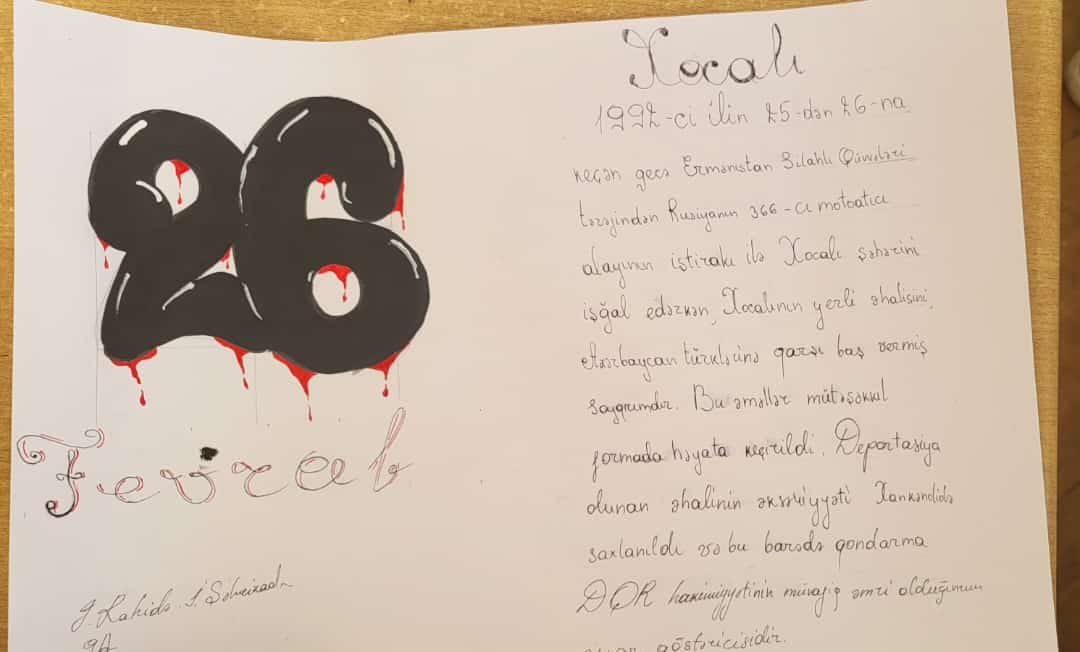 26
Fevral
J. Zahidə. S. Səlimzadə
9A
Xocalı
1992-ci ilin 25-dən 26-na
keçən gecə Ermənistan Silahlı Qüvvələri
tərəfindən Rusiyanın 366-cı motoatıcı
alayının iştirakı ilə Xocalı şəhərini
işğal edərkən, Xocalının yerli əhalisini,
Azərbaycan türklərinə qarşı baş vermiş
soyqırımdır. Bu əməllər mütəşəkkil
formada həyata keçirildi. Deportasiya
olunan əhalinin əksəriyyəti Xankəndidə
saxlanıldı və bu barədə qondarma
DQR hakimiyyətinin müvafiq əmri olduğunun
göstəricisidir.